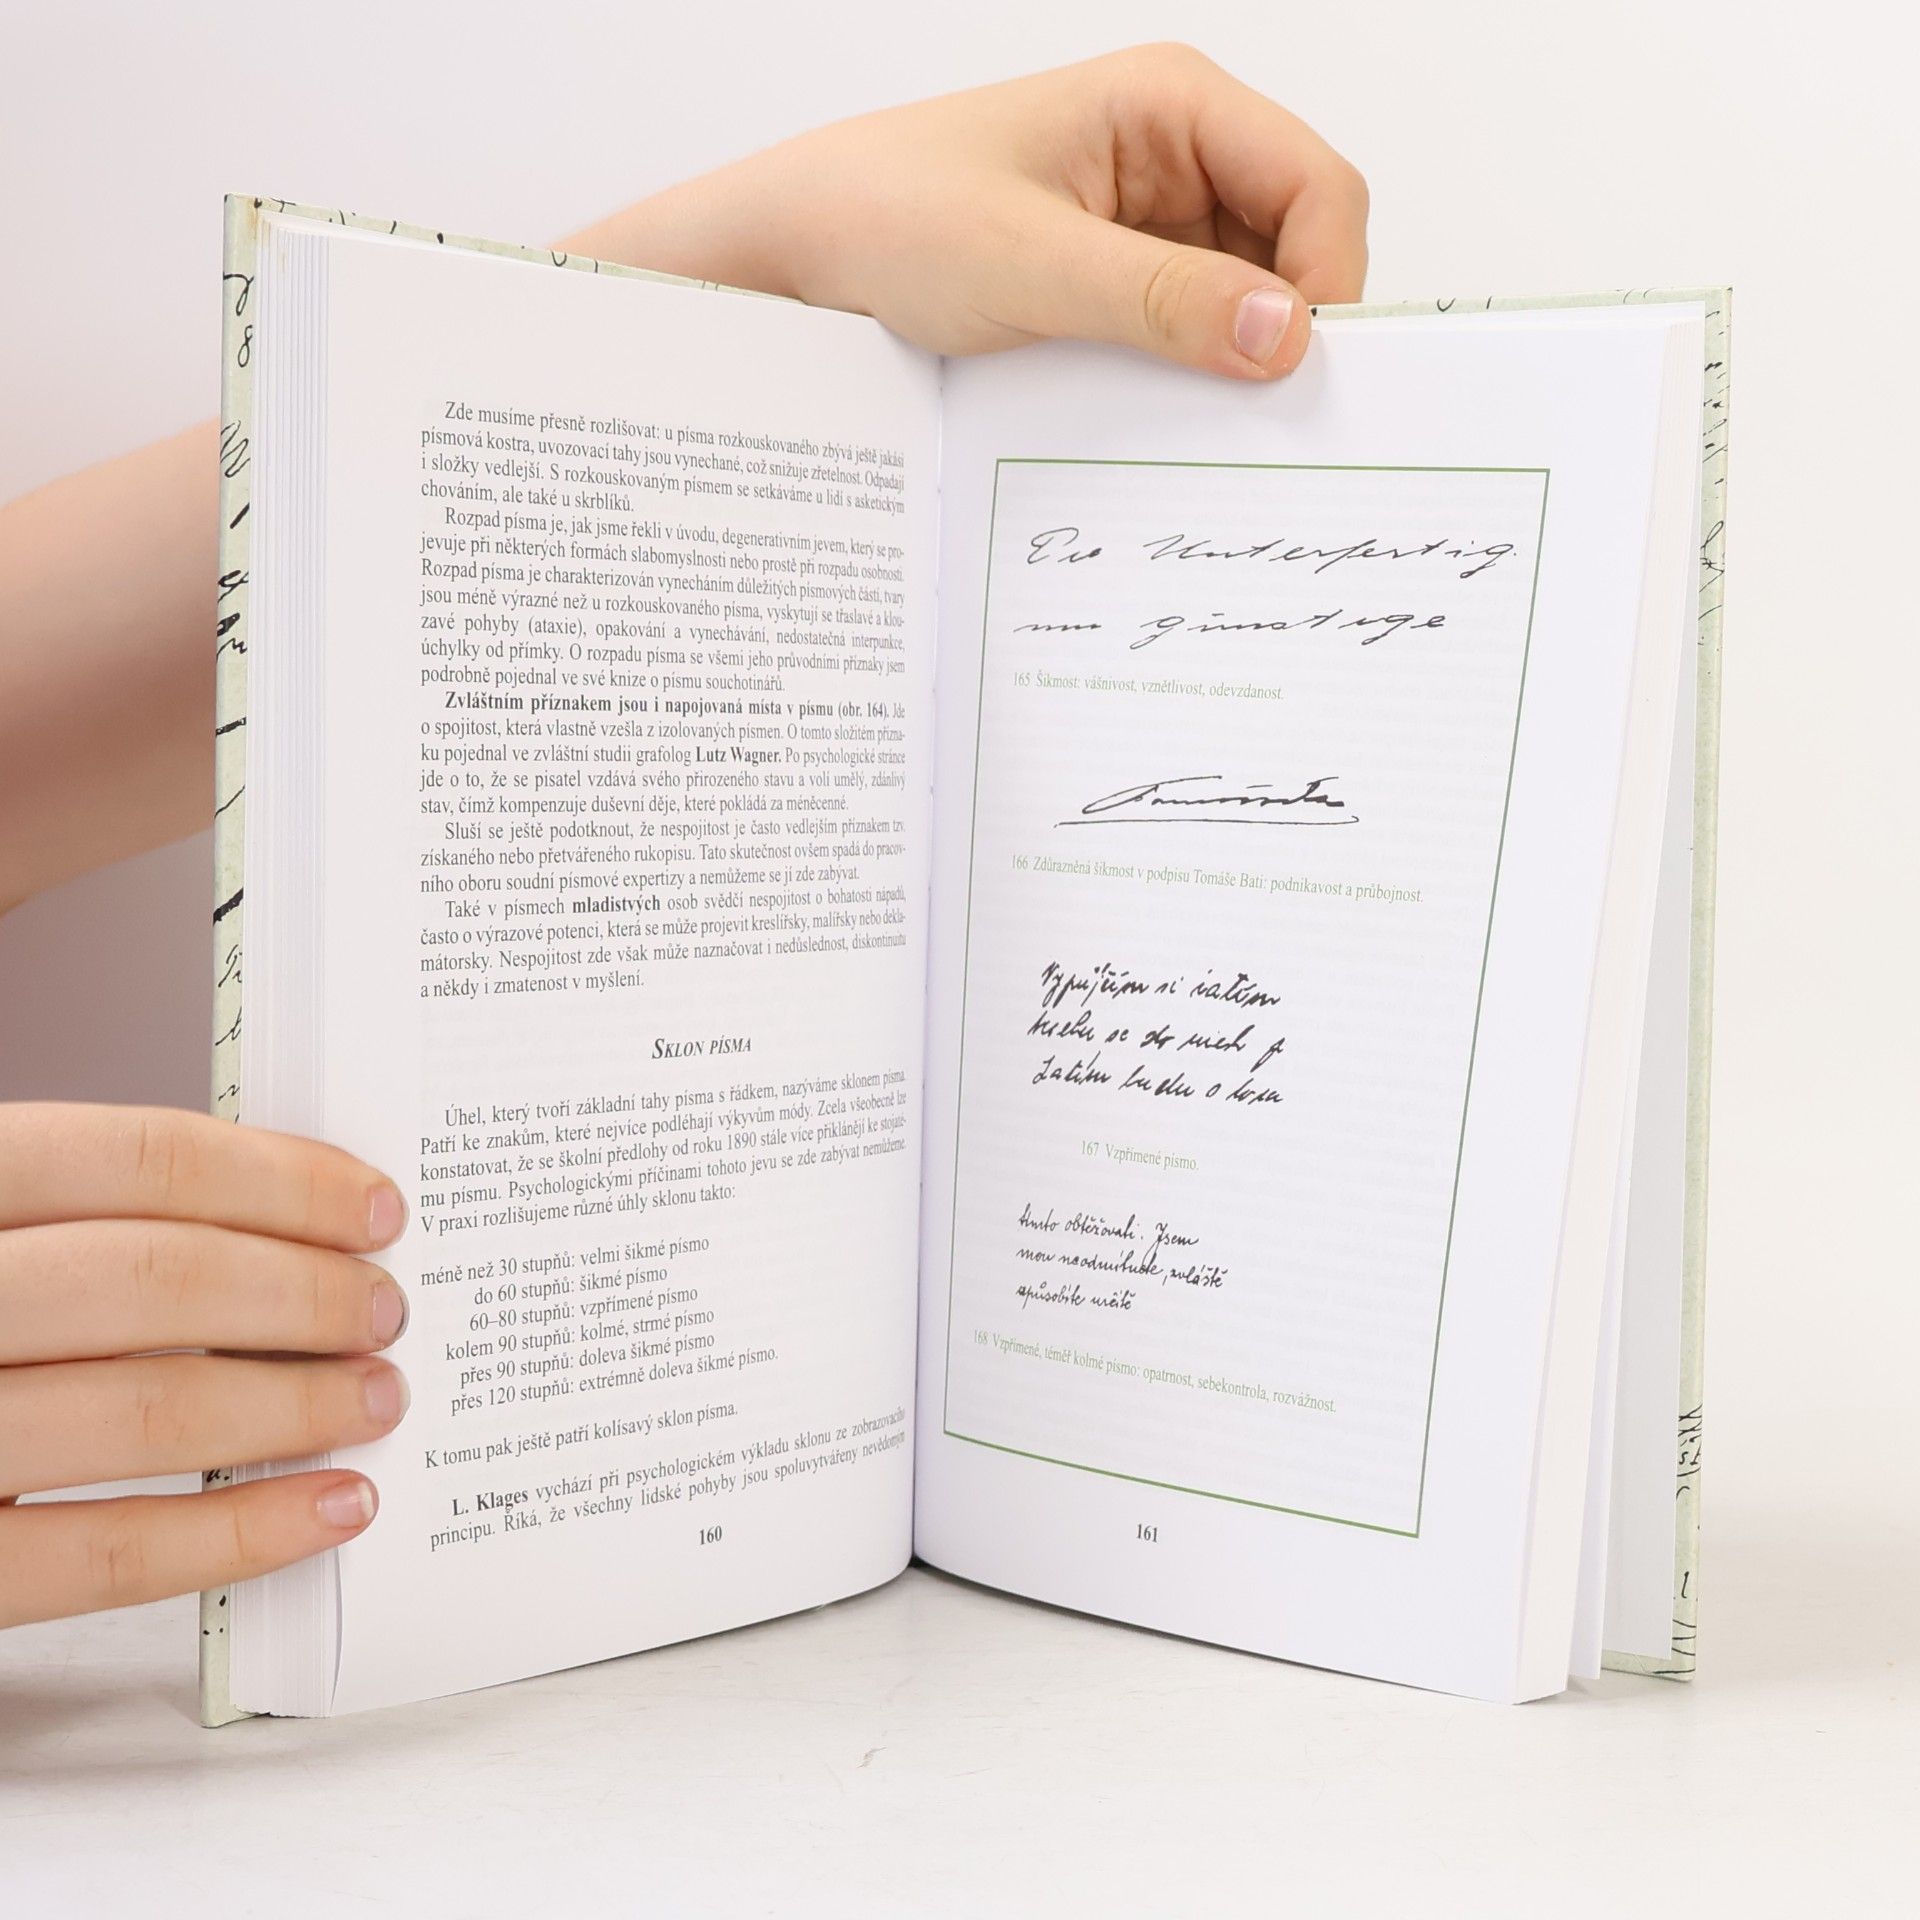 Zde musíme přesně rozlišovat: u písma rozkouskovaného zbývá ještě jakási
písmová kostra, uvozovací tahy jsou vynechané, což snižuje zřetelnost. Odpadají
i složky vedlejší. S rozkouskovaným písmem se setkáváme u lidí s asketickým
chováním, ale také u skrblíků.
Rozpad písma je, jak jsme řekli v úvodu, degenerativním jevem, který se pro-
jevuje při některých formách slabomyslnosti nebo prostě při rozpadu osobnosti.
Rozpad písma je charakterizován vynecháním důležitých písmových částí, tvary
jsou méně výrazné než u rozkouskovaného písma, vyskytují se třaslavé a klou-
zavé pohyby (ataxie), opakování a vynechávání, nedostatečná interpunkce,
úchylky od přímky. O rozpadu písma se všemi jeho průvodními příznaky jsem
podrobně pojednal ve své knize o písmu souchotinářů.
Zvláštním příznakem jsou i napojovaná místa v písmu (obr. 164). Jde
o spojitost, která vlastně vzešla z izolovaných písmen. O tomto složitém přízna-
ku pojednal ve zvláštní studii grafolog Lutz Wagner. Po psychologické stránce
jde o to, že se pisatel vzdává svého přirozeného stavu a volí umělý, zdánlivý
stav, čímž kompenzuje duševní děje, které pokládá za méněcenné.
Sluší se ještě podotknout, že nespojitost je často vedlejším příznakem tzv.
získaného nebo přetvářeného rukopisu. Tato skutečnost ovšem spadá do pracov-
ního oboru soudní písmové expertizy a nemůžeme se jí zde zabývat.
Také v písmech mladistvých osob svědčí nespojitost o bohatosti nápadů,
často o výrazové potenci, která se může projevit kreslířsky, malířsky nebo dekla-
mátorsky. Nespojitost zde však může naznačovat i nedůslednost, diskontinuitu
a někdy i zmatenost v myšlení.
SKLON PÍSMA
Úhel, který tvoří základní tahy písma s řádkem, nazýváme sklonem písma.
Patří ke znakům, které nejvíce podléhají výkyvům módy. Zcela všeobecně lze
konstatovat, že se školní předlohy od roku 1890 stále více přiklánějí ke stojaté-
mu písmu. Psychologickými příčinami tohoto jevu se zde zabývat nemůžeme.
V praxi rozlišujeme různé úhly sklonu takto:
méně než 30 stupňů: velmi šikmé písmo
do 60 stupňů: šikmé písmo
60–80 stupňů: vzpřímené písmo
kolem 90 stupňů: kolmé, strmé písmo
přes 90 stupňů: doleva šikmé písmo
přes 120 stupňů: extrémně doleva šikmé písmo.
K tomu pak ještě patří kolísavý sklon písma.
L. Klages vychází při psychologickém výkladu sklonu ze zobrazovacího
principu. Říká, že všechny lidské pohyby jsou spoluvytvářeny nevědomým
160
Unterfertig.
günstige
165 Šikmost: vášnivost, vznětlivost, odevzdanost.
166 Zdůrazněná šikmost v podpisu Tomáše Bati: podnikavost a průbojnost.
Vypůjčím si zatím
se do nich
Zatím budu o tom
167 Vzpřímené písmo.
tímto obtěžovati. Jsem
mou neodmítnete, zvláště
způsobíte určitě
168 Vzpřímené, téměř kolmé písmo: opatrnost, sebekontrola, rozvážnost.
161